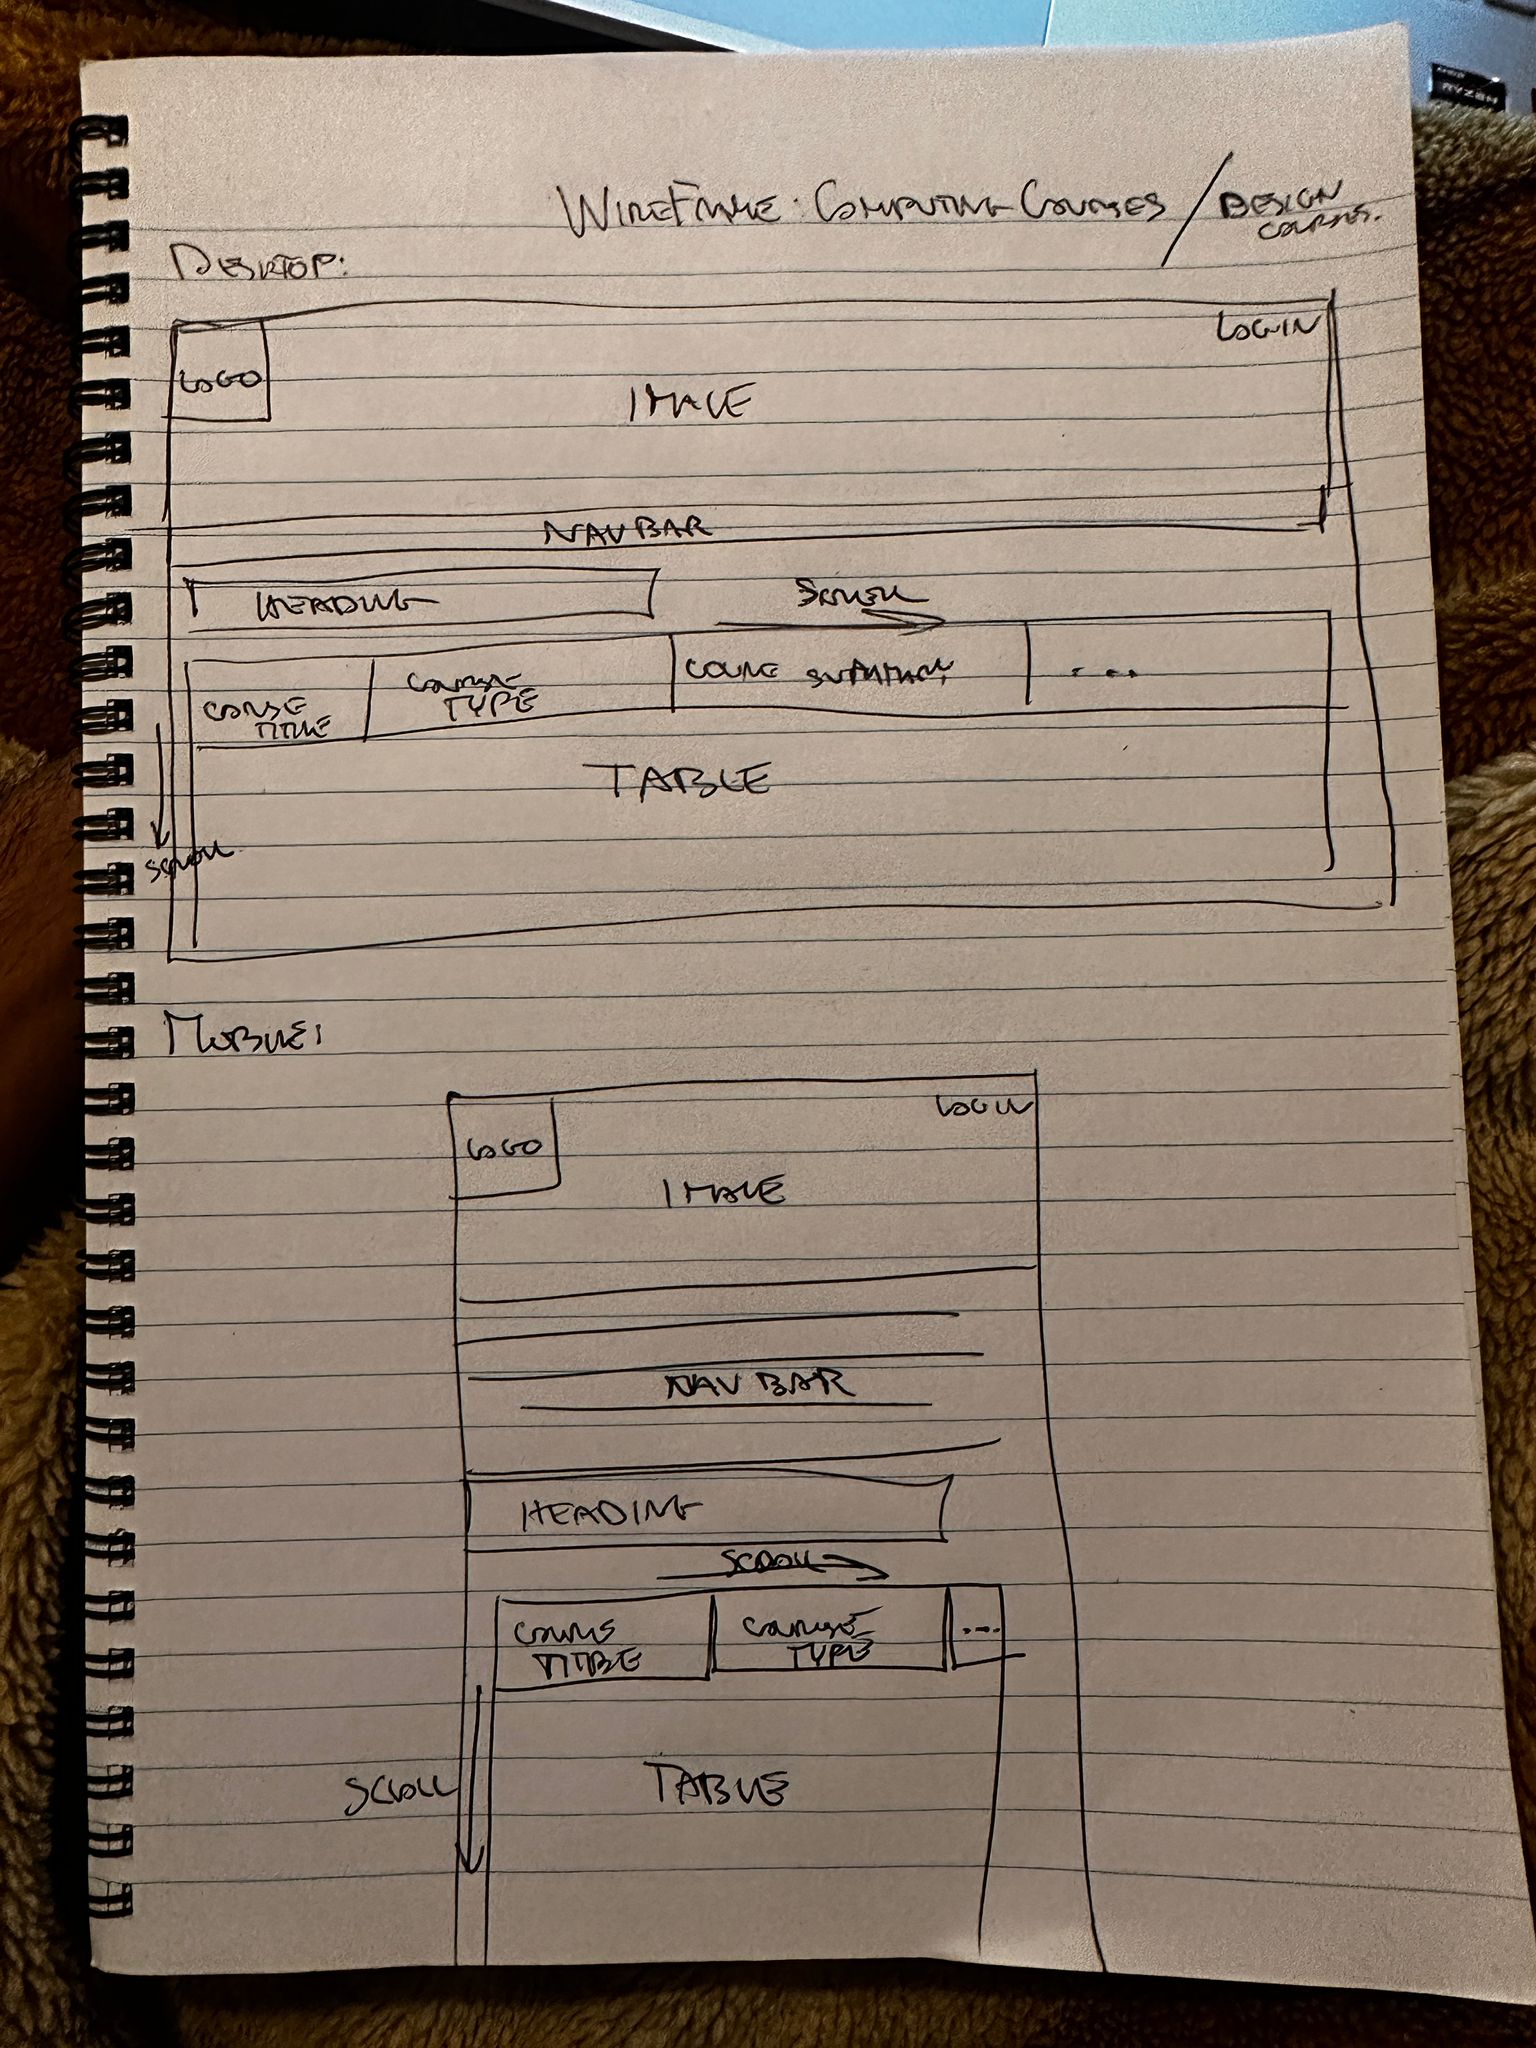 WIREFRAME: COMPUTING COURSES / DESIGN COURSES.
DESKTOP:
LOGO
LOGIN
IMAGE
NAV BAR
HEADING
SCROLL
COURSE TITLE
COURSE TYPE
COURSE SUMMARY
...
TABLE
SCROLL
MOBILE:
LOGO
LOGIN
IMAGE
NAV BAR
HEADING
SCROLL
COURSE TITLE
COURSE TYPE
...
SCROLL
TABLE
RYZEN